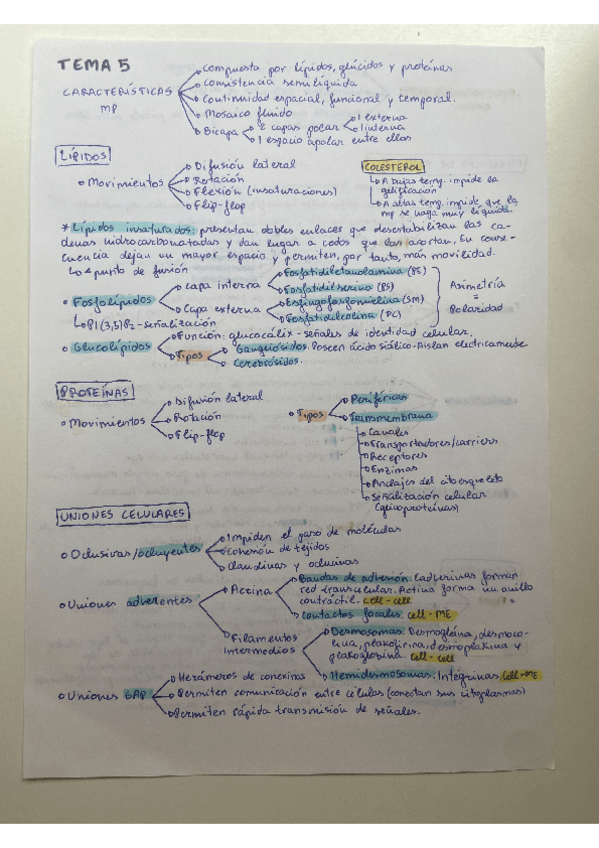 TEMA 5
CARACTERÍSTICAS MP
Compuesta por lípidos, glúcidos y proteínas
Consistencia semilíquida
Continuidad espacial, funcional y temporal.
Mosaico fluido
Bicapa
2 capas polar
1 externa
1 interna
1 espacio apolar entre ellas
LÍPIDOS
Movimientos
Difusión lateral
Rotación
Flexión (insaturaciones)
Flip-flop
COLESTEROL
A bajas temp. impide la
gelificación
A altas temp. impide que la
mp se haga muy líquida.
* Lípidos insaturados: presentan dobles enlaces que desestabilizan las ca-
denas hidrocarbonatadas y dan lugar a codos que las acortan. En conse-
cuencia dejan un mayor espacio y permiten, por tanto, más movilidad.
punto de fusión
Fosfolípidos
Capa interna
Fosfatidiletanolamina (PE)
Fosfatidilserina (PS)
Capa externa
Esfingofosfomielina (SM)
Fosfatidilcolina (PC)
Asimetría
=
Polaridad
PI(3,5)P2 - señalización
Glucolípidos
Función: glucocálix - señales de identidad celular.
Tipos
Gangliósidos. Poseen ácido siálico. Aislan electricamente
Cerebrósidos.
PROTEÍNAS
Movimientos
Difusión lateral
Rotación
Flip-flop
Tipos
Periféricas
Transmembrana
Canales
Transportadores/carriers
Receptores
Enzimas
Anclajes del citoesqueleto
Señalización celular
(glicoproteínas)
UNIONES CELULARES
Oclusivas/ocluyentes
Impiden el paso de moléculas
Cohesión de tejidos
Claudinas y ocluinas
Uniones adherentes
Actina
Bandas de adhesión. Cadherinas forman
red transcelular. Actina forma un anillo
contráctil. cell-cell
Contactos focales. cell-ME
Filamentos
Intermedios
Desmosomas. Desmogleína, desmoco-
lina, plakofirina, desmoplakina y
plakoglobina. cell-cell
Hemidesmosomas. Integrinas. cell-ME
Uniones GAP
Hexámeros de conexinas
Permiten comunicación entre células (conectan sus citoplasmas)
Permiten rápida transmisión de señales.